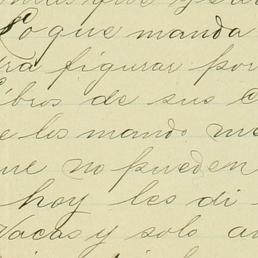 Lo que manda
ra figurar por
libros de sus C
e los mando me
ue no pueden
hoy les di
Vacas y solo au